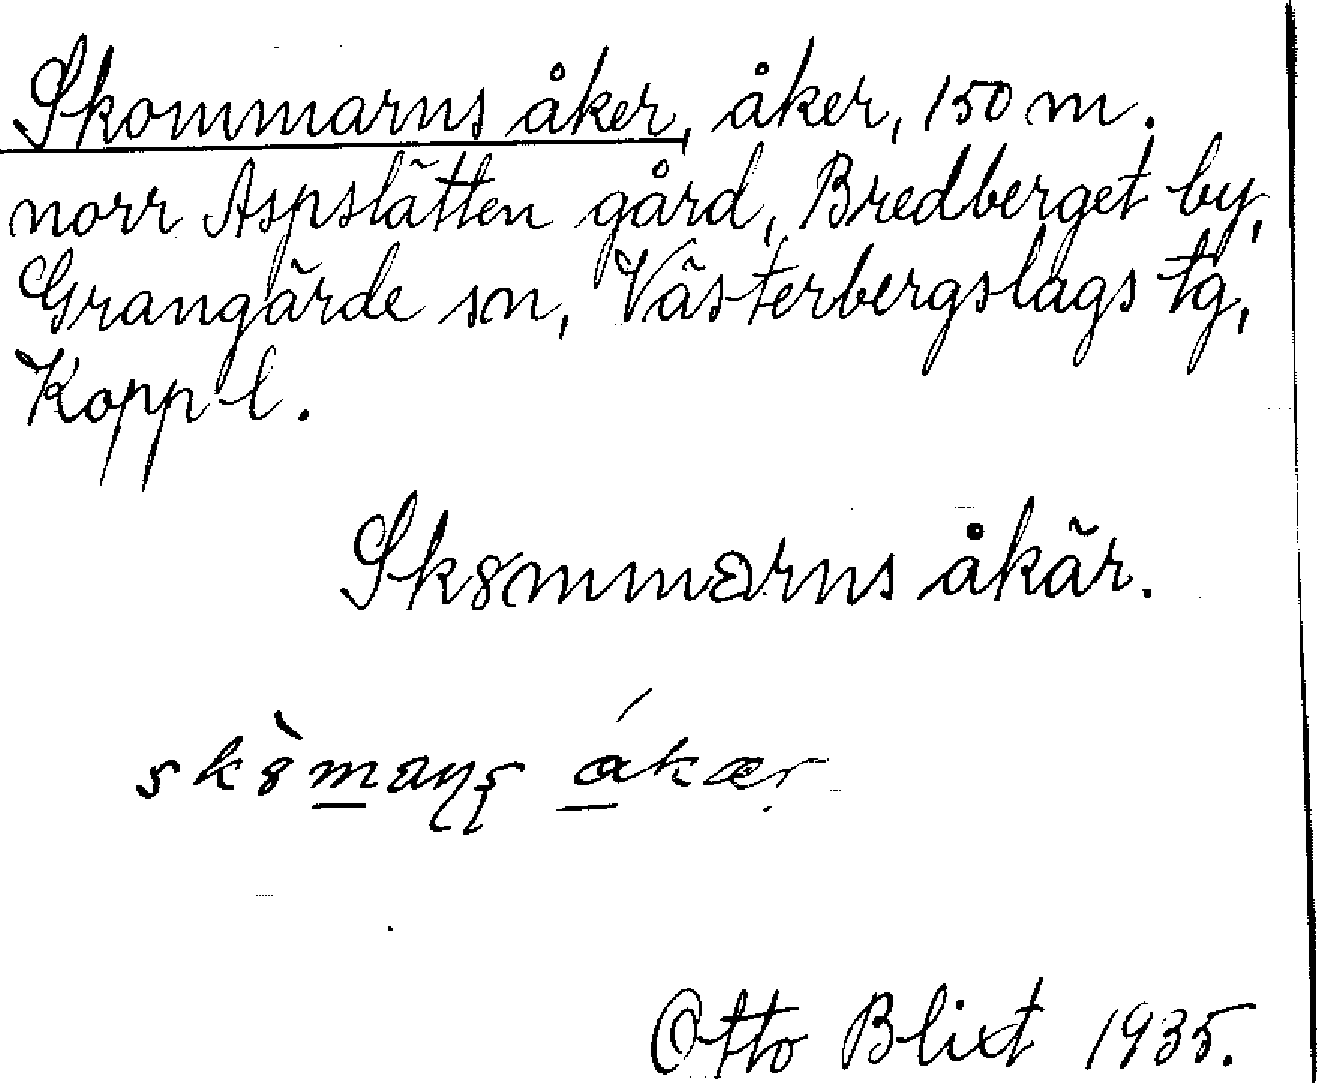 Skommarns åker, åker, 150 m.
norr Aspslätten gård, Bredberget by,
Grangärde sn, Västerbergslags tg,
Kopp l.
Skꝏmmarns åkär.
skꝏ̀maɳʂ ákær
Otto Blixt 1935.